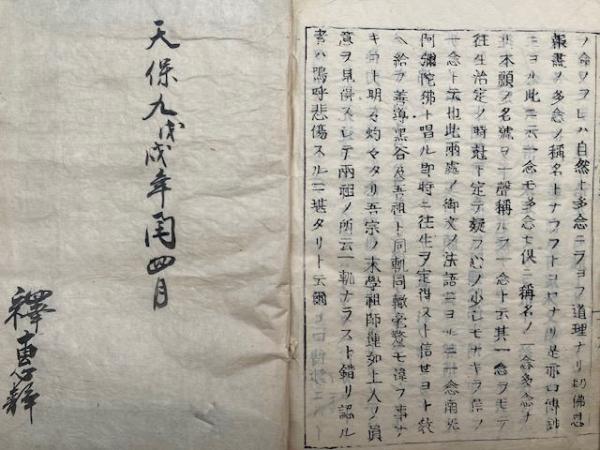 ノ命ヲフレハ自然ト多念ニヲヨフ道理ナリ
報盡ノ多念ノ稱名トナラフトコロナリ是亦口傳鈔
ニヨル此ニ云一念モ多念モ俱ニ稱名ノ一念多念ナ
本願ノ名號ヲ一聲稱ルヲ一念ト云其一念ヲモテ
往生治定ノ時尅ト定テ疑フ心ノ少シモナキヲ信ノ
一念ト云也此兩處ノ御文ノ法語ニヨル南无
阿彌陀佛ト唱ル即時ニ往生ヲ定得スト信セヨト教
ヘ給ヲ善導黑谷及吾祖ト同軌同轍毫釐モ違フ事ナ
キコト明々灼々タリ吾宗ノ末學祖師蓮如上人ノ眞
意ヲ見得スシテ兩祖ノ所云一軌ナラスト錯リ認ル
者ハ嗚呼悲傷スルニ堪タリト云爾
天保九戊戌年閏四月
釋惠